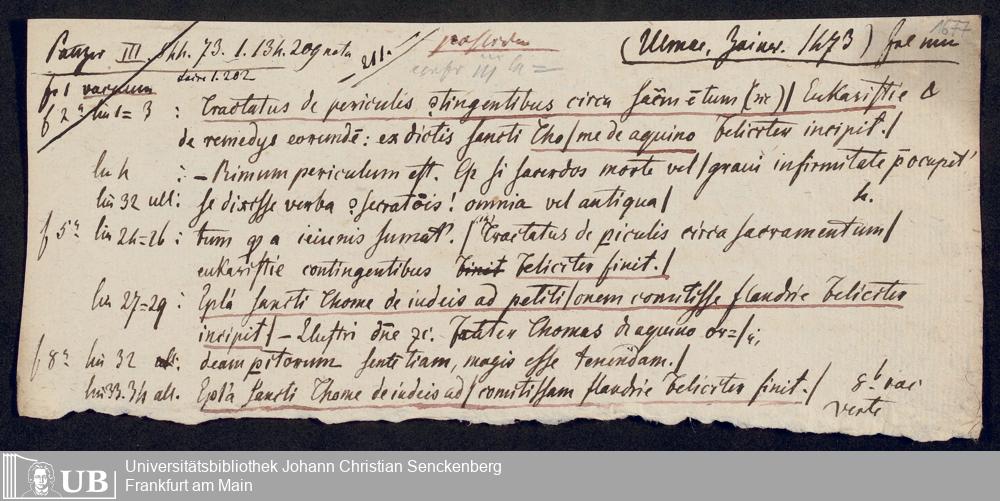 Panzer III. 73. 1. 134. 209 nota
211.
(Ulmae, Zainer. 1473) fol min
1677
confer III
f 1 vacuum
f 2ª lin 1=3 : Tractatus de periculis ɔtingentibus circa sacm̄ ētum (sic)/ Eukaristie &
de remedys eorundē: ex dictis sancti Tho/me de aquino Feliciter incipit./
lin 4 : – Rimum periculum est. Qz si sacerdos morte vel/ graui infirmitate p̄ocupet'
lin 32 ult: se dixisse verba ɔsecratōis! omnia vel antiqua/
h.
f 5ª lin 24=26 : tum qz a ieiunis sumat'. / (sic) Tractatus de piculis circa sacramentum/
eukaristie contingentibus Feliciter finit./
lin 27=29 : Epl'a sancti Thome de iudeis ad petiti/onem comitisse flandrie Feliciter
incipit/ – Llustri dn̄e zc. Frater Thomas de aquino or=/
f 8ª lin 32 : deam pitorum sententiam, magis esse tenendam./
lin 33.34 ult. Epl'a Sancti Thome de iudeis ad/ comitissam flandrie Feliciter finit./
8ᵇ vac
verte
UB
Universitätsbibliothek Johann Christian Senckenberg
Frankfurt am Main